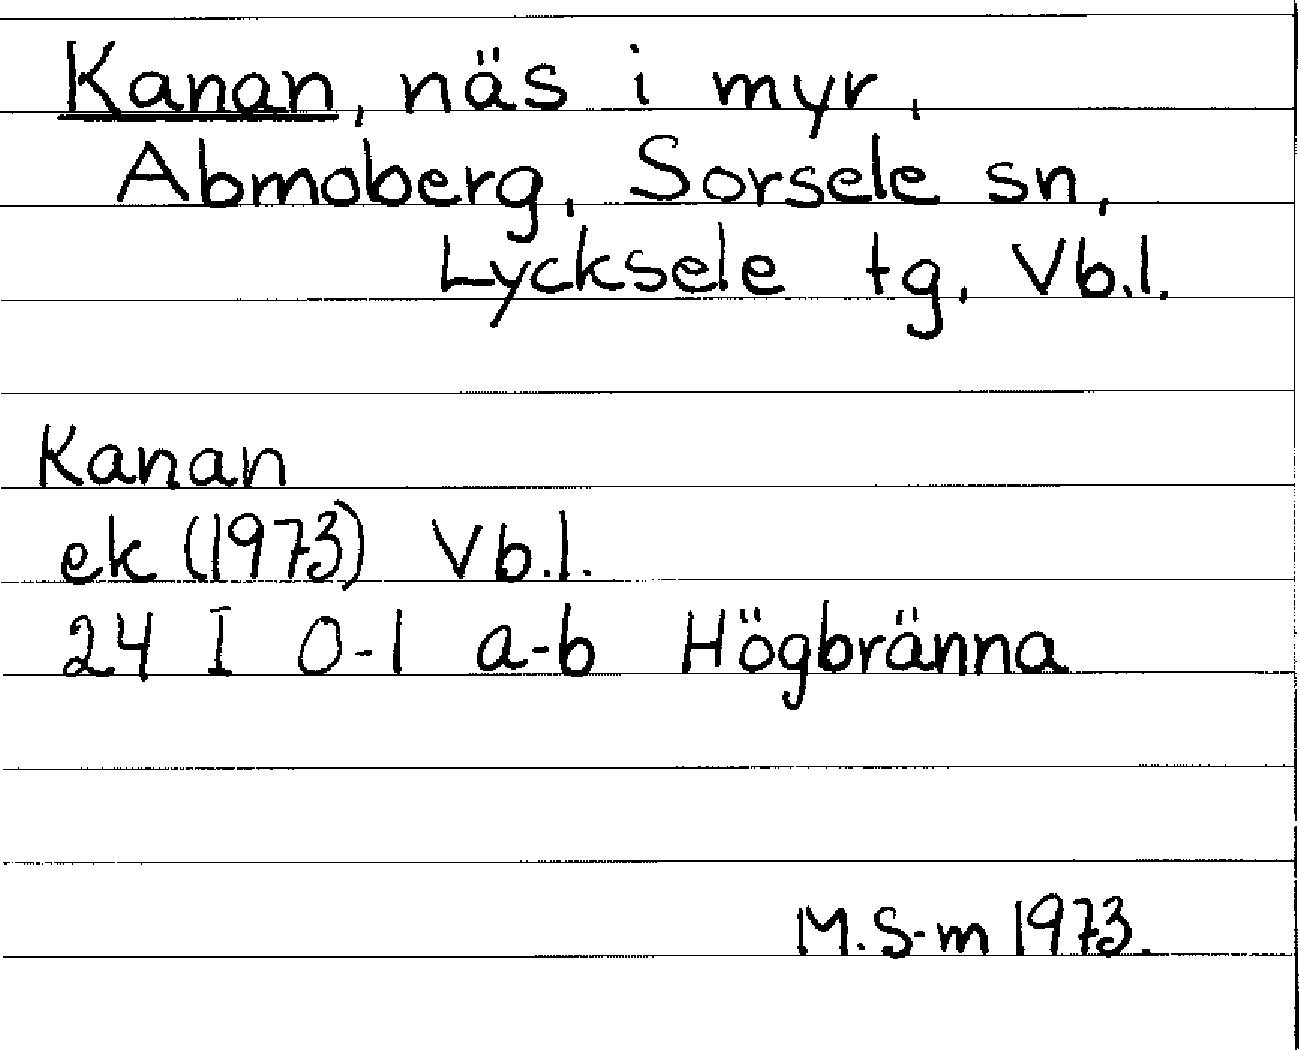 Kanan, näs i myr,
Abmoberg, Sorsele sn,
Lycksele tg, Vb.l.
Kanan
ek (1973) Vb.l.
24 I 0-1 a-b Högbränna
M.S-m 1973.